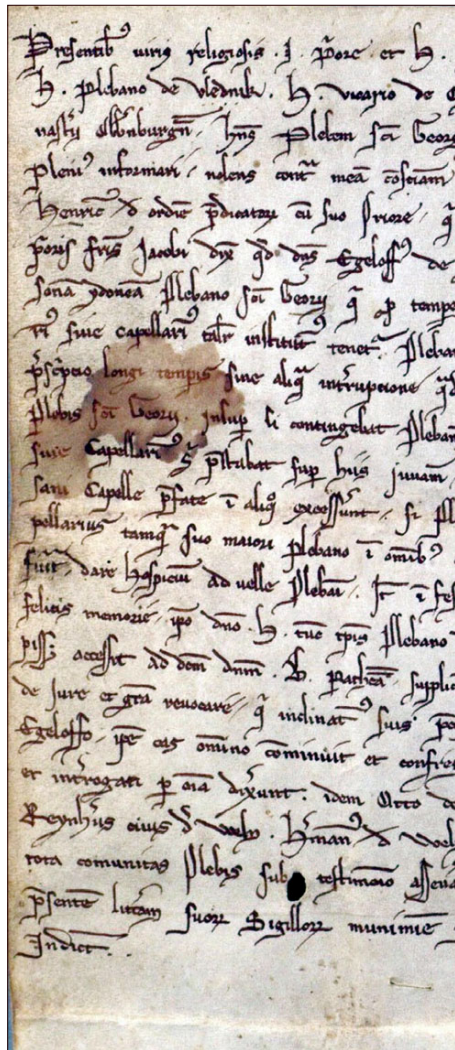 Presentib' viris religiosis . J . p̄ore et H .
H . Plebano de vlednik . H . vicario de
nastīj hn̄s Plebem sc̄i Georg
Pleni' informari nolens cont͛ meā cōsciam
Henric' d ordīe p̄dicatorų cū suo Priore q̄
p̄oris fr̄is Jacobi dix̄ qd̄ dn̄s Egeloff' de
sonā ydoneā Plebano sc̄i Georij q̄ tempe
siue capellari' talr̄ institut' tenet͛ . Pleba
longi tempis siue aliq̄ int̄rupcione
Plebis sc̄i Georij . Insup si contingebat Pleban
siue Capellari' p̄stabat sup hiis juuam
Capelle p̄fate ī aliq̊ excess̄nt si Pl
pellarius tamq̄ suo maiori plebano ī omīb'
fūit dare hospiciū ad velle Plebāi . It̄ ī fes
felicis memorie ip̄o dn̄o . H . tūc tp̄is Plebano
accessit ad dom̄ dnm̄ . B . supplic
de jure et gr̄a reuocare q̄ inclinat' suis
Egeloffo ip̄e eas om̄ino cōminuit et confre
et int̄rogati p om̄ia dix̄unt . idem Otto de
Reynh̄us ciuis d̄ . H̄man' d
tota comunitas Plebis sub testimoīo asseu
p̄sentē litt̄am suorų Sigillorų munimīe
Indict̄ .